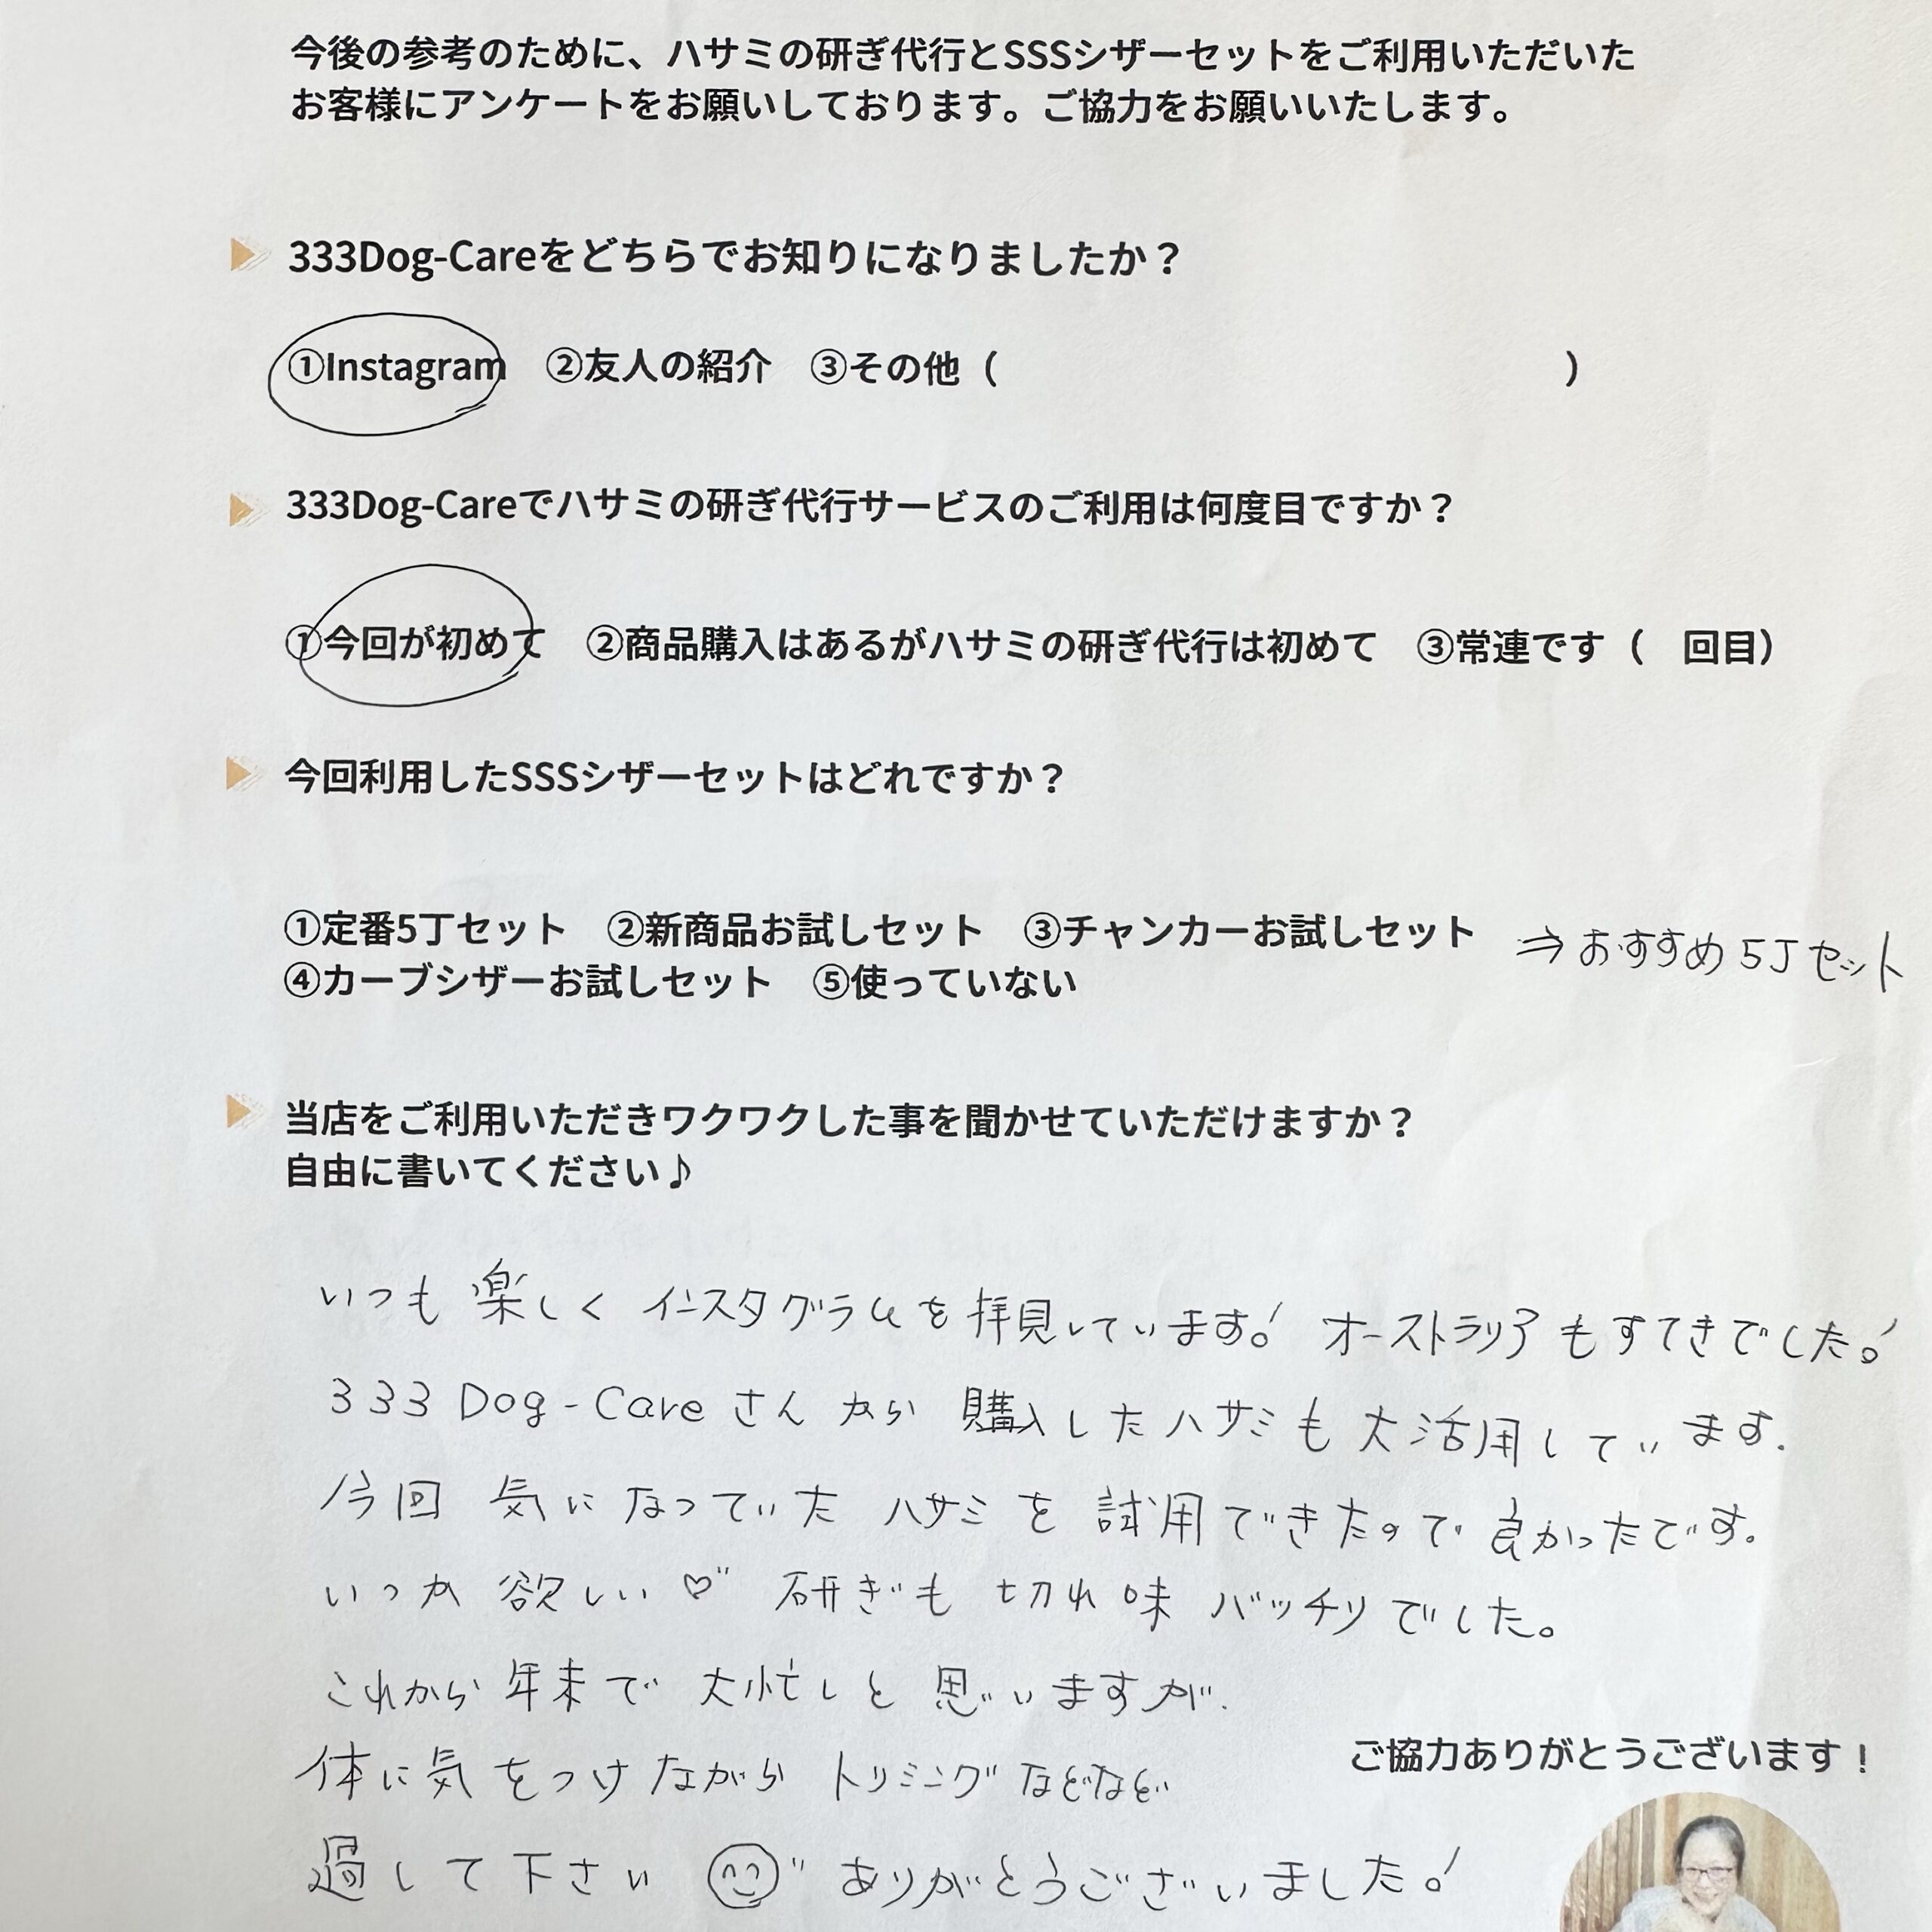 今後の参考のために、ハサミの研ぎ代行とSSSシザーセットをご利用いただいた
お客様にアンケートをお願いしております。ご協力をお願いいたします。
333Dog-Careをどちらでお知りになりましたか？
①Instagram　②友人の紹介　③その他（　　　　　　　）
333Dog-Careでハサミの研ぎ代行サービスのご利用は何度目ですか？
①今回が初めて　②商品購入はあるがハサミの研ぎ代行は初めて　③常連です（　回目）
今回利用したSSSシザーセットはどれですか？
①定番5丁セット　②新商品お試しセット　③チャンカーお試しセット
⇒おすすめ5丁セット
④カーブシザーお試しセット　⑤使っていない
当店をご利用いただきワクワクした事を聞かせていただけますか？
自由に書いてください♪
いつも楽しくインスタグラムを拝見しています!。オーストラリアもすてきでした!。
333 Dog-Careさんから購入したハサミも大活用しています.
今回気になっていたハサミを試用できたので良かったです。
いつか欲しい♡" 研ぎも切れ味バッチリでした。
これから年末で大忙しと思いますが.
体に気をつけながらトリミングなどなど
ご協力ありがとうございます！
過して下さい ありがとうございました!。